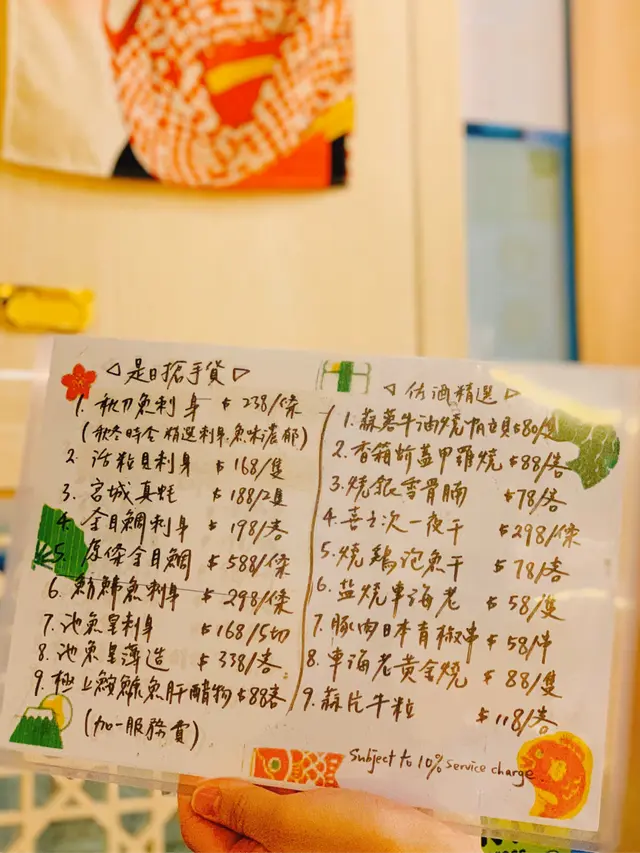 是日搶手貨
1. 秋刀魚刺身 $238/條
(秋冬時令精選刺身.魚味濃郁)
2. 活粒貝刺身 $168/隻
3. 宮城真蚝 $188/2隻
4. 金目鯛刺身 $198/客
5. 原條金目鯛 $588/條
6. 魚刺身 $298/條
7. 池魚皇刺身 $168/5切
8. 池魚皇薄造 $338/客
9. 極上鮟鱇魚肝醋物 $88客
(加一服務費)
佐酒精選
1. 蒜蓉牛油燒帆立貝 $80/隻
2. 香箱蚧蓋甲羅燒 $88/客
3. 燒銀雪骨腩 $78/客
4. 喜之次一夜干 $298/條
5. 燒鷄泡魚干 $78/客
6. 盐燒車海老 $58/隻
7. 豚肉日本青椒串 $58/串
8. 車海老黄金燒 $88/隻
9. 蒜片牛粒 $118/客
Subject to 10% service charge